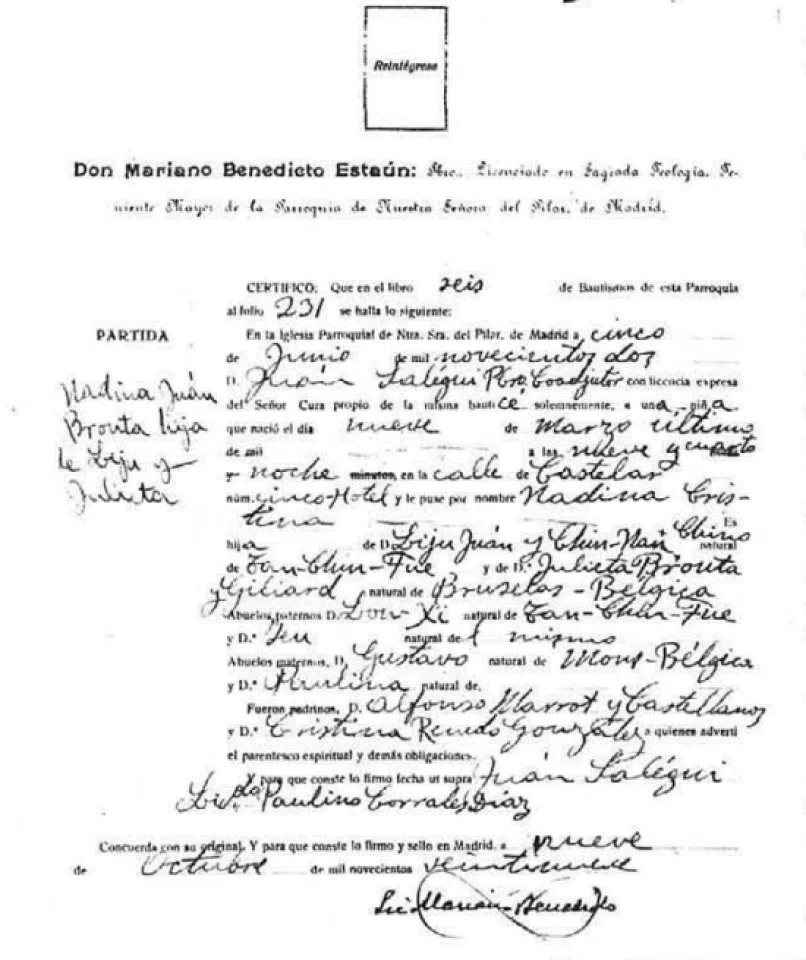 Reintégrese
Don Mariano Benedicto Estaún: Pbro., Licenciado en Sagrada Teología, Te-
niente Mayor de la Parroquia de Nuestra Señora del Pilar, de Madrid.
CERTIFICO: Que en el libro seis de Bautismos de esta Parroquia
al folio 231 se halla lo siguiente:
PARTIDA
Nadina Juán
Brouta hija
de Liju y
Julieta
En la Iglesia Parroquial de Ntra. Sra. del Pilar, de Madrid a cinco
de Junio de mil novecientos dos
D. Juán Salégui Pbro Coadjutor con licencia expresa
del Señor Cura propio de la misma bauticé solemnemente, a una niña
que nació el día nueve de Marzo último
de mil a las nueve y cuarto
y noche minutos, en la calle de Castelar
núm. cinco-Hotel y le puse por nombre Nadina Cris-
tina Es
hija de D. Liju Juán y Chin-Nan Chino natural
de Tan-Chun-Fue y de D.ª Julieta Brouta
y Giliard natural de Bruselas-Bélgica
Abuelos paternos D. Lou-Xi natural de Tan-Chun-Fue
y D.ª Jeu natural de mismo
Abuelos maternos, D. Gustavo natural de Mons-Bélgica
y D.ª Paulina natural de
Fueron padrinos, D. Alfonso Marrot y Castellanos
y D.ª Cristina González a quienes advertí
el parentesco espiritual y demás obligaciones.
Y para que conste lo firmo fecha ut supra Juán Salégui
Licdo Paulino Corrales Díaz
Concuerda con su original. Y para que conste lo firmo y sello en Madrid, a nueve
de Octubre de mil novecientos veintinueve
Lic Mariano Benedicto